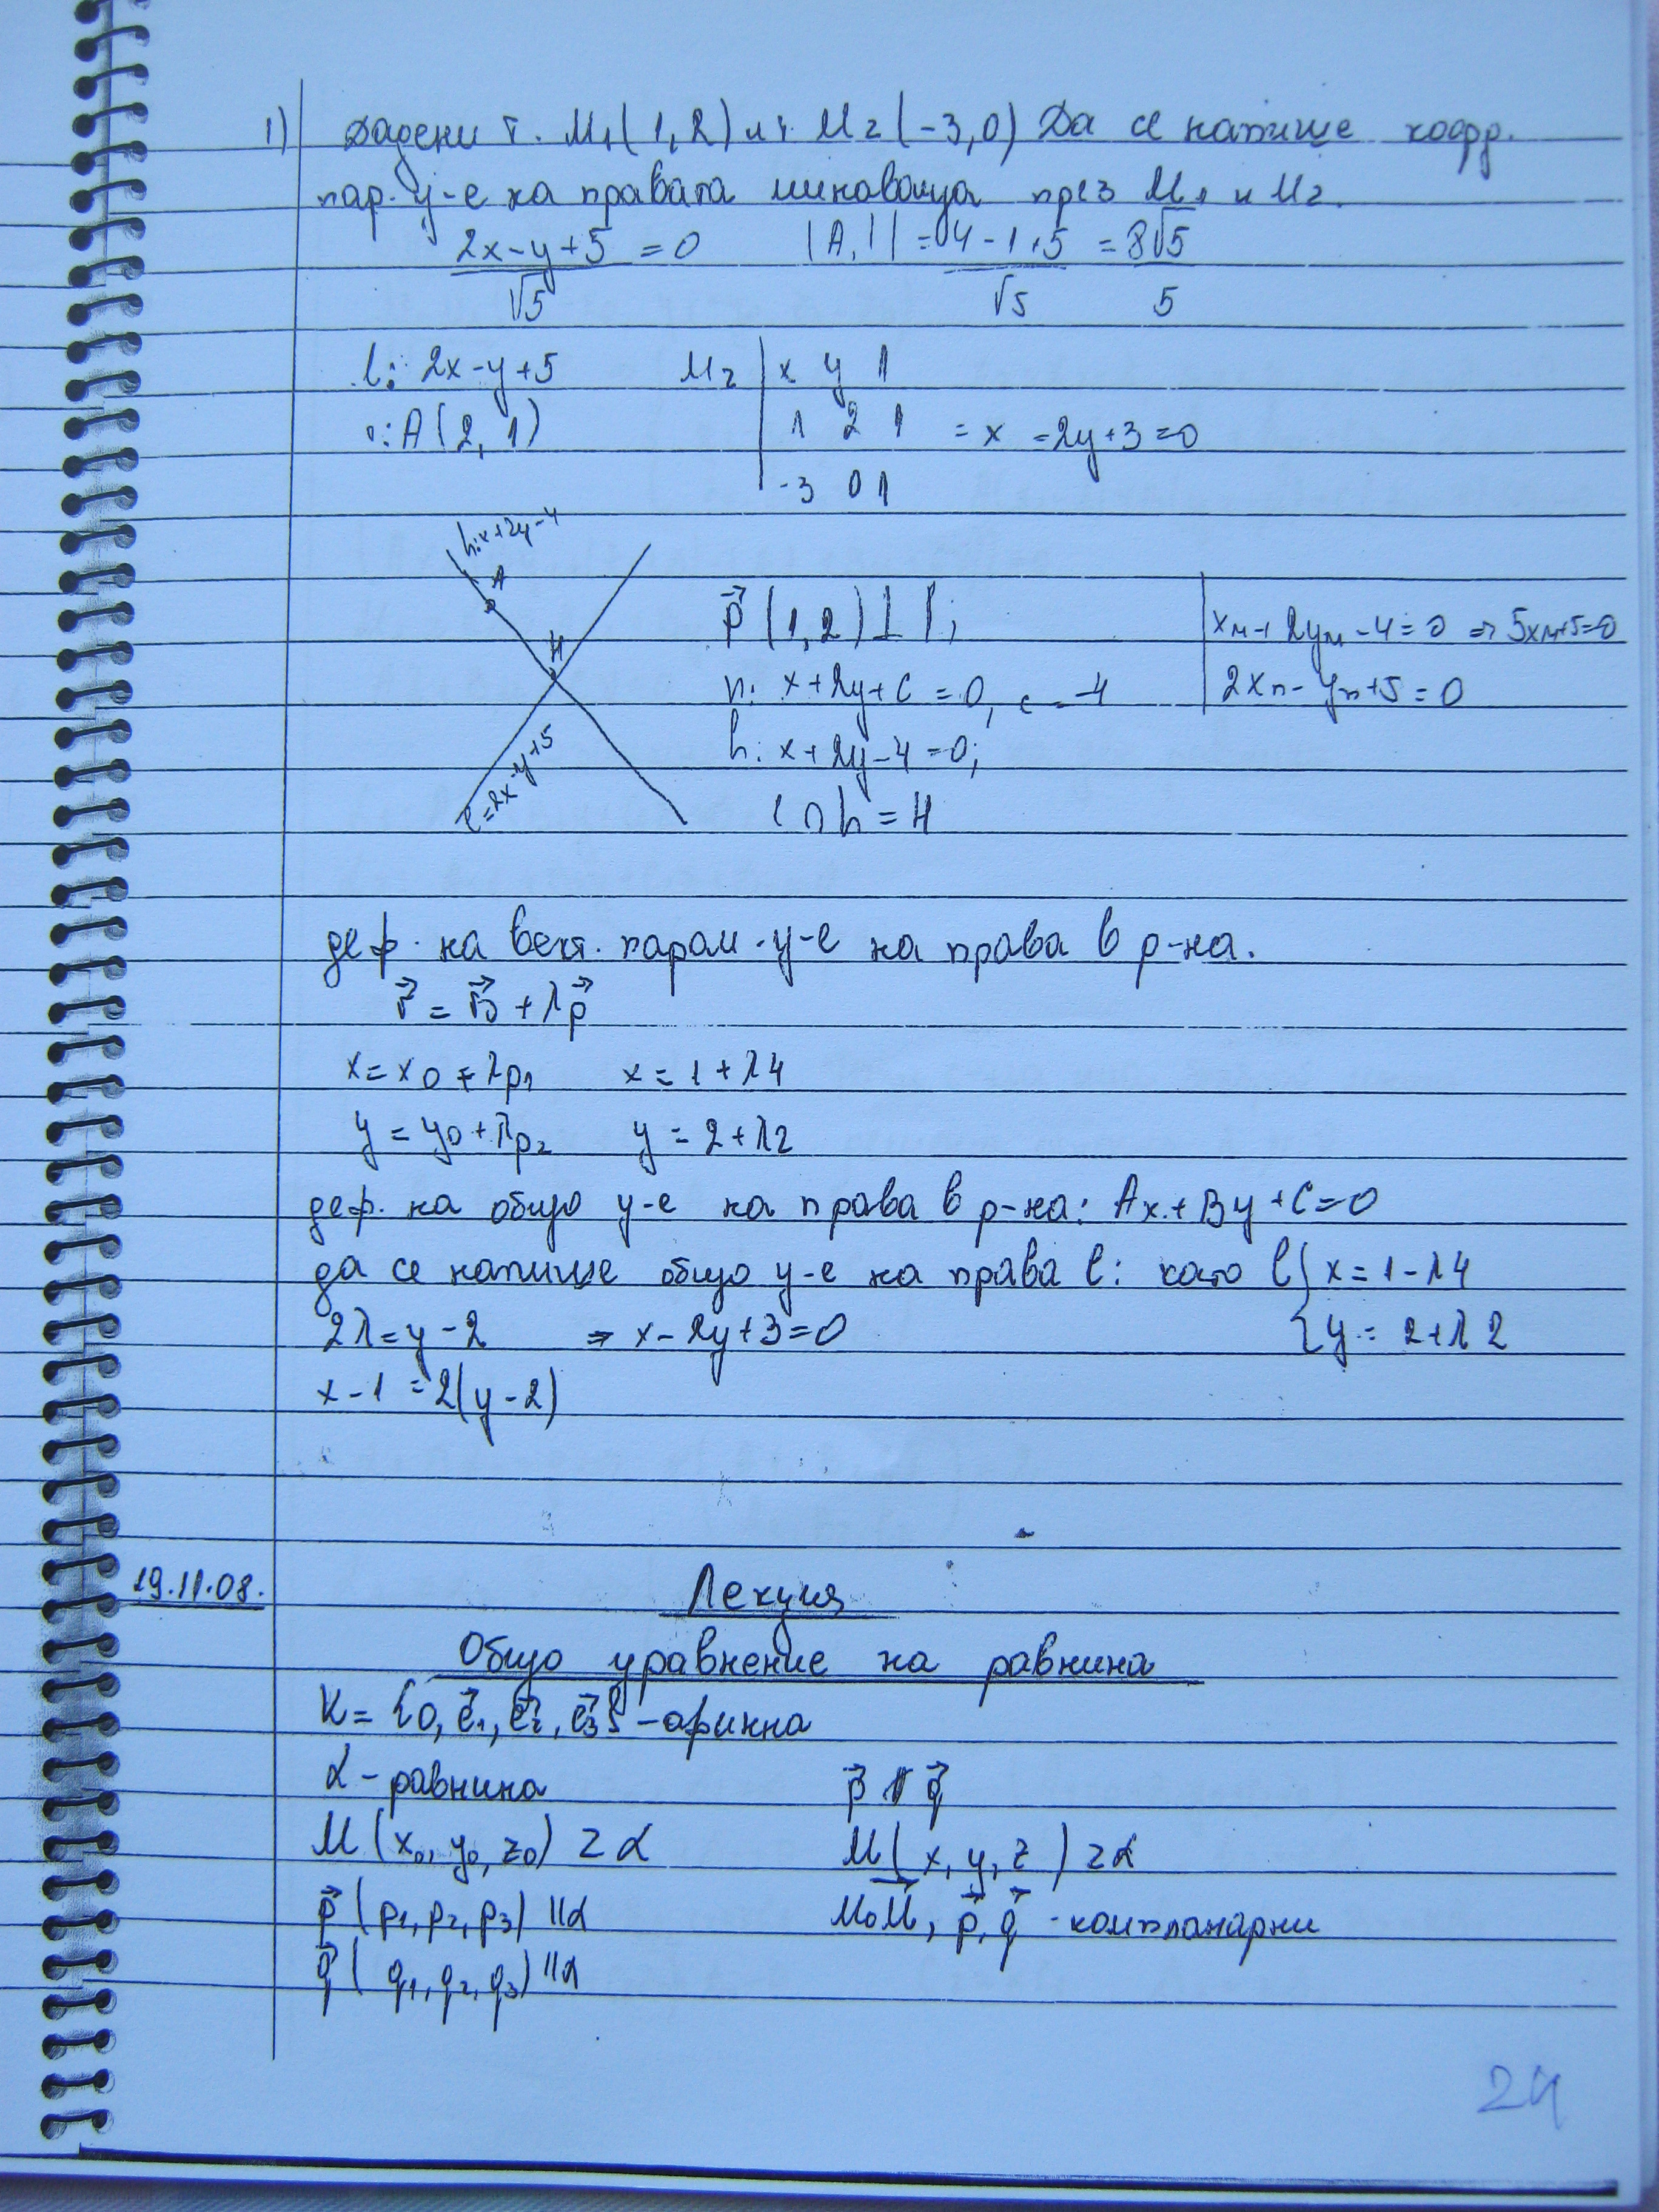 1) Дадени т. M₁(1,2) и т. M₂(-3,0) Да се напише коорд.
пар. у-е на правата минаваща през M₁ и M₂.
(2x-y+5)/√5 = 0 |A,l| = (4-1+5)/√5 = 8√5/5
l: 2x-y+5 M₂ | x y 1
A(2,1) 1 2 1 = x -2y+3=0
-3 0 1
h: x+2y-4
A
H
l=2x-y+5
p⃗(1,2) ⊥ l; xн+2yн-4=0 ⇒ 5xн+5=0
h: x+2y+C=0, c=-4 2xн-yн+5=0
h: x+2y-4=0;
l∩h=H
деф. на вект. парам. у-е на права в р-на.
r⃗ = r⃗₀ + λp⃗
x=x₀+λp₁ x=1+λ4
y=y₀+λp₂ y=2+λ2
деф. на общо у-е на права в р-на: Ax+By+C=0
да се напише общо у-е на права l: като l{x=1-λ4
2λ=y-2 ⇒ x-2y+3=0 {y=2+λ2
x-1=2(y-2)
19.11.08. Лекция
Общо уравнение на равнина
K={0, e⃗₁, e⃗₂, e⃗₃} - афинна
α - равнина p⃗ ∦ q⃗
M(x₀, y₀, z₀) z α M(x, y, z) z α
p⃗(p₁, p₂, p₃) ||α M₀M⃗, p⃗, q⃗ - компланарни
q⃗(q₁, q₂, q₃) ||α
24